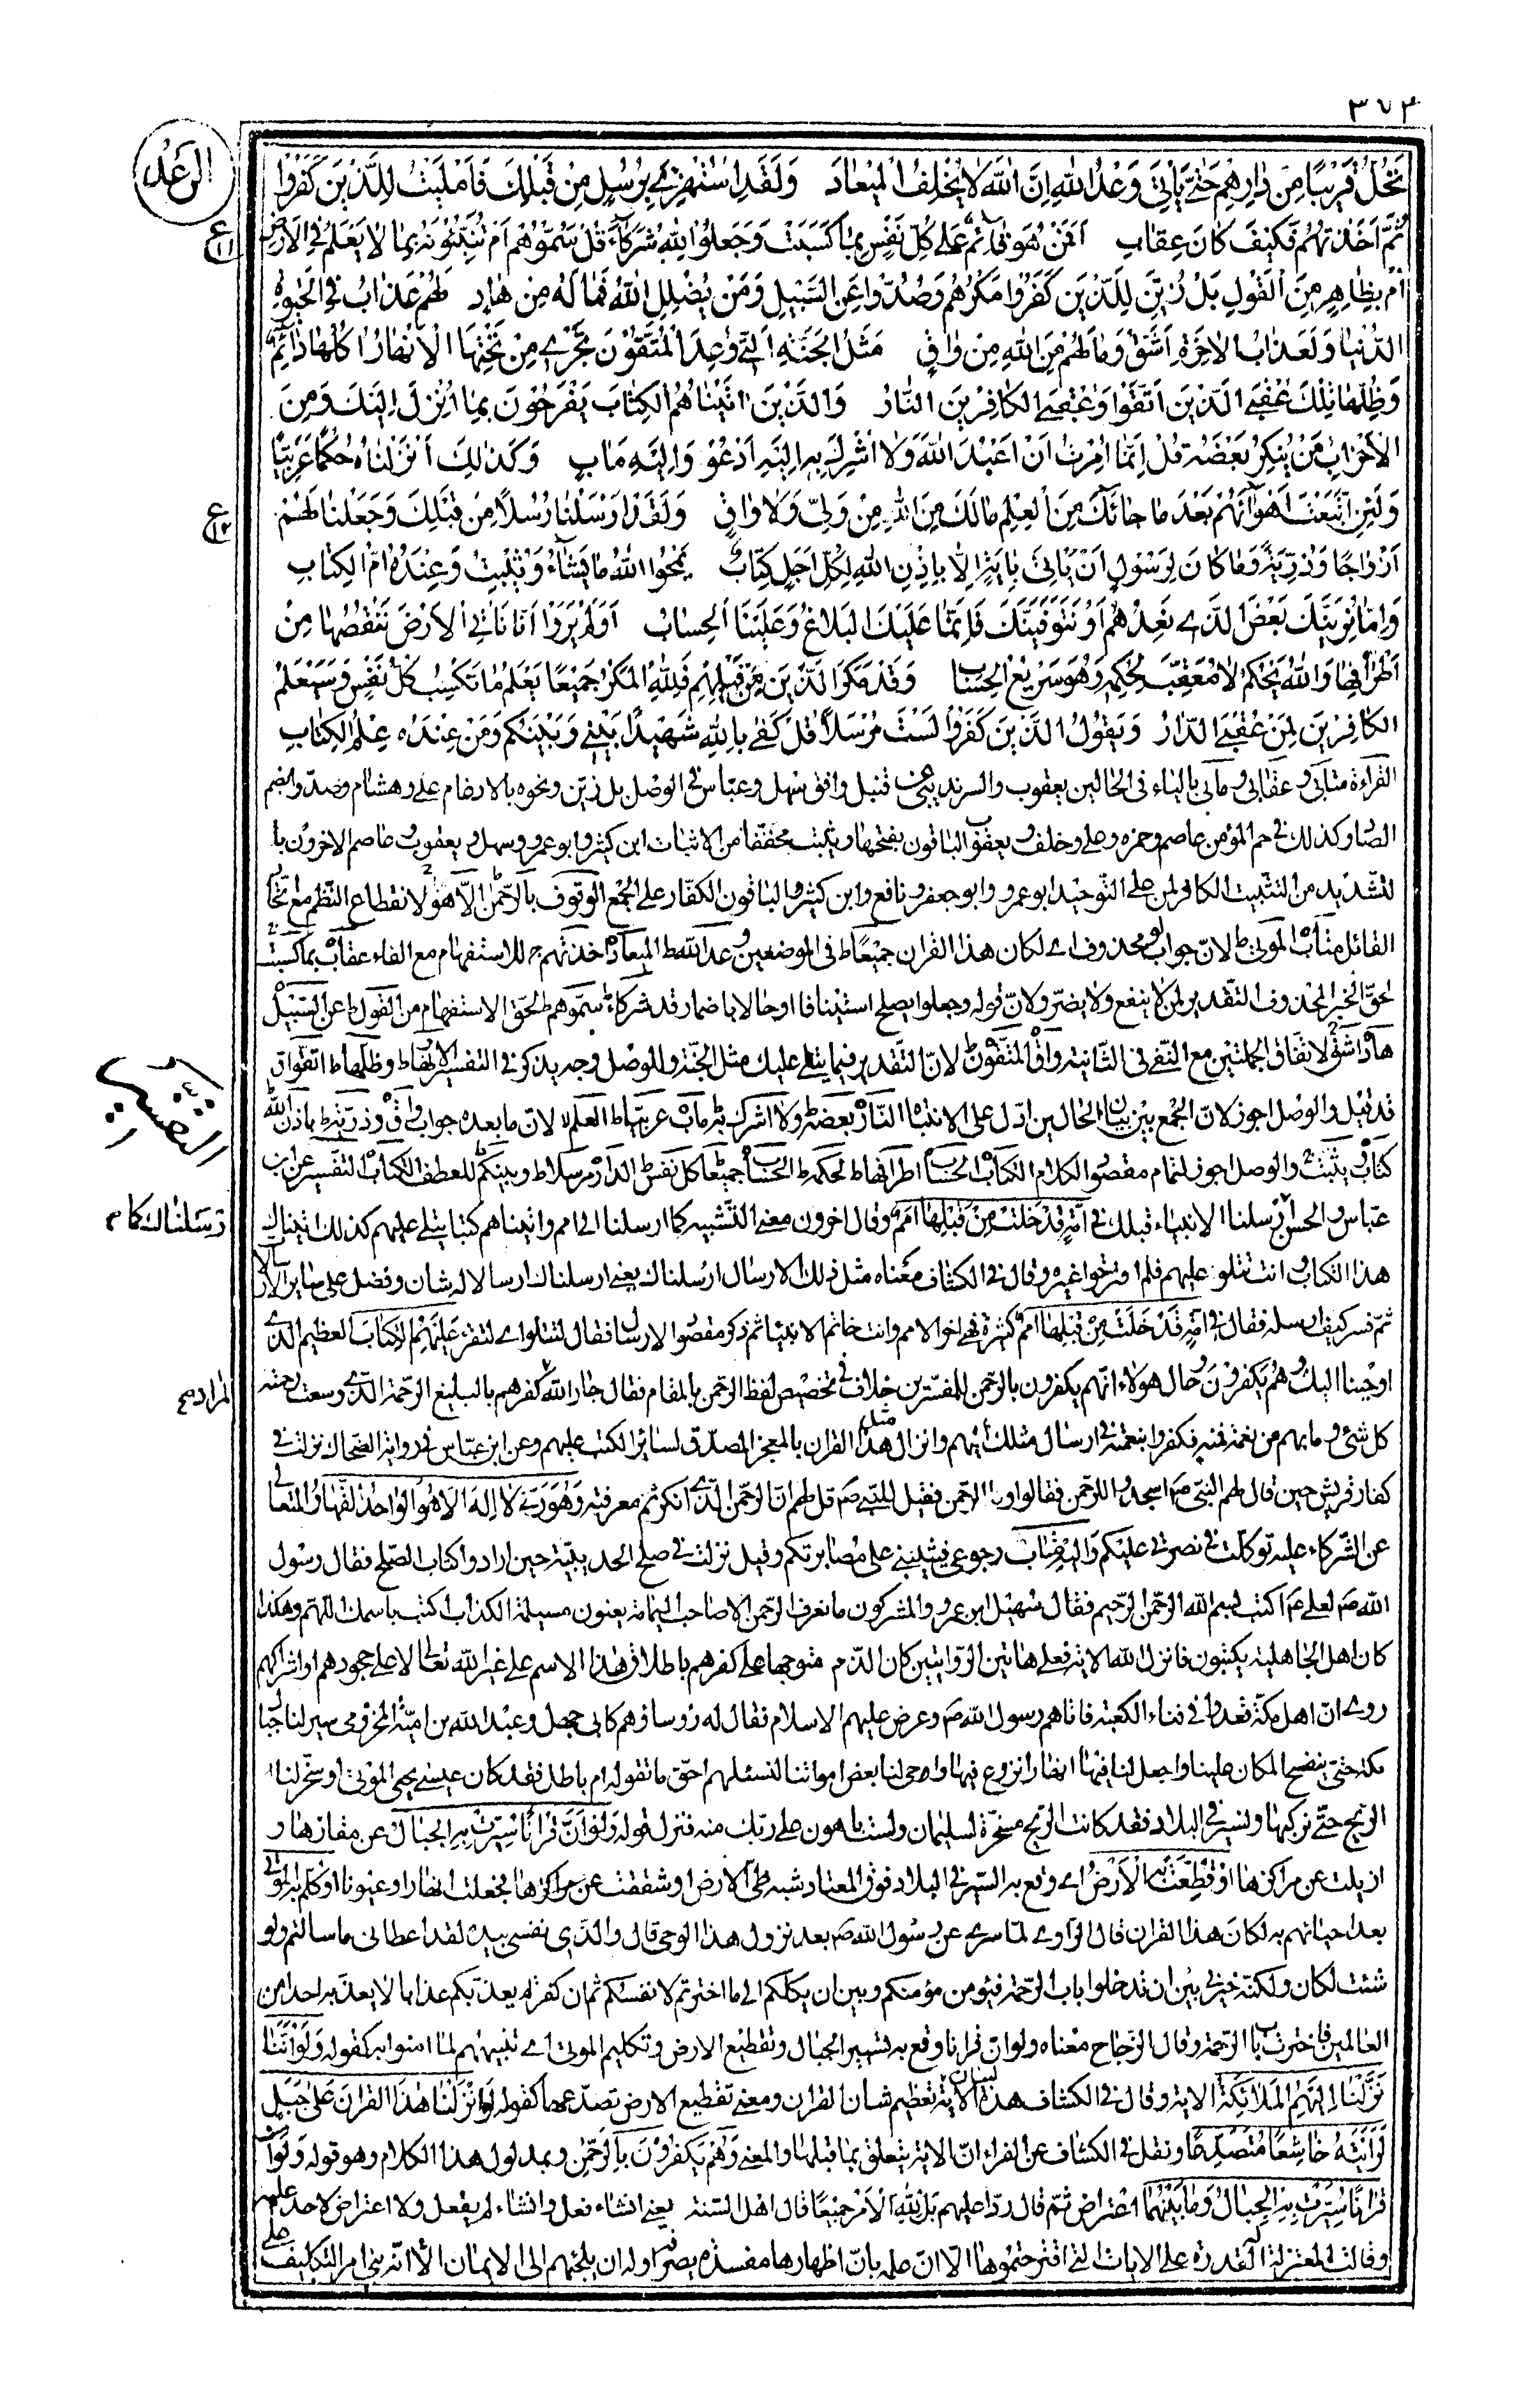 ٣٧٣
الرعد
تَحُلُّ قَرِيبًا مِنْ دٰارِهِمْ حَتّٰى يَأْتِيَ وَعْدُ اللّٰهِ اِنَّ اللّٰهَ لٰا يُخْلِفُ الْمِيعٰادَ وَلَقَدِ اسْتُهْزِئَ بِرُسُلٍ مِنْ قَبْلِكَ فَاَمْلَيْتُ لِلَّذِينَ كَفَرُوا
ثُمَّ اَخَذْتُهُمْ فَكَيْفَ كَانَ عِقٰابِ اَفَمَنْ هُوَ قٰائِمٌ عَلٰى كُلِّ نَفْسٍ بِمٰا كَسَبَتْ وَجَعَلُوا لِلّٰهِ شُرَكٰاءَ قُلْ سَمُّوهُمْ اَمْ تُنَبِّئُونَهُ بِمٰا لٰا يَعْلَمُ فِي الْاَرْضِ
ع ١١
اَمْ بِظٰاهِرٍ مِنَ الْقَوْلِ بَلْ زُيِّنَ لِلَّذِينَ كَفَرُوا مَكْرُهُمْ وَصُدُّوا عَنِ السَّبِيلِ وَمَنْ يُضْلِلِ اللّٰهُ فَمٰا لَهُ مِنْ هٰادٍ لَهُمْ عَذٰابٌ فِي الْحَيٰوةِ
الدُّنْيٰا وَلَعَذٰابُ الْاٰخِرَةِ اَشَقُّ وَمٰا لَهُمْ مِنَ اللّٰهِ مِنْ وٰاقٍ مَثَلُ الْجَنَّةِ الَّتِي وُعِدَ الْمُتَّقُونَ تَجْرِي مِنْ تَحْتِهَا الْاَنْهٰارُ اُكُلُهٰا دٰائِمٌ
وَظِلُّهٰا تِلْكَ عُقْبَى الَّذِينَ اتَّقَوْا وَعُقْبَى الْكٰافِرِينَ النّٰارُ وَالَّذِينَ اٰتَيْنٰاهُمُ الْكِتٰابَ يَفْرَحُونَ بِمٰا اُنْزِلَ اِلَيْكَ وَمِنَ
الْاَحْزٰابِ مَنْ يُنْكِرُ بَعْضَهُ قُلْ اِنَّمٰا اُمِرْتُ اَنْ اَعْبُدَ اللّٰهَ وَلٰا اُشْرِكَ بِهِ اِلَيْهِ اَدْعُو وَاِلَيْهِ مَاٰبِ وَكَذٰلِكَ اَنْزَلْنٰاهُ حُكْمًا عَرَبِيًّا
وَلَئِنِ اتَّبَعْتَ اَهْوٰاءَهُمْ بَعْدَ مٰا جٰائَكَ مِنَ الْعِلْمِ مٰا لَكَ مِنَ اللّٰهِ مِنْ وَلِيٍّ وَلٰا وٰاقٍ وَلَقَدْ اَرْسَلْنٰا رُسُلًا مِنْ قَبْلِكَ وَجَعَلْنٰا لَهُمْ
ع ١٢
اَزْوٰاجًا وَذُرِّيَّةً وَمٰا كٰانَ لِرَسُولٍ اَنْ يَأْتِيَ بِاٰيَةٍ اِلّٰا بِاِذْنِ اللّٰهِ لِكُلِّ اَجَلٍ كِتٰابٌ يَمْحُوا اللّٰهُ مٰا يَشٰاءُ وَيُثْبِتُ وَعِنْدَهُ اُمُّ الْكِتٰابِ
وَاِمّٰا نُرِيَنَّكَ بَعْضَ الَّذِي نَعِدُهُمْ اَوْ نَتَوَفَّيَنَّكَ فَاِنَّمٰا عَلَيْكَ الْبَلٰاغُ وَعَلَيْنَا الْحِسٰابُ اَوَلَمْ يَرَوْا اَنّٰا نَأْتِي الْاَرْضَ نَنْقُصُهٰا مِنْ
اَطْرٰافِهٰا وَاللّٰهُ يَحْكُمُ لٰا مُعَقِّبَ لِحُكْمِهِ وَهُوَ سَرِيعُ الْحِسٰابِ وَقَدْ مَكَرَ الَّذِينَ مِنْ قَبْلِهِمْ فَلِلّٰهِ الْمَكْرُ جَمِيعًا يَعْلَمُ مٰا تَكْسِبُ كُلُّ نَفْسٍ وَسَيَعْلَمُ
الْكٰافِرِينَ لِمَنْ عُقْبَى الدّٰارِ وَيَقُولُ الَّذِينَ كَفَرُوا لَسْتَ مُرْسَلًا قُلْ كَفٰى بِاللّٰهِ شَهِيدًا بَيْنِي وَبَيْنَكُمْ وَمَنْ عِنْدَهُ عِلْمُ الْكِتٰابِ
القراءة متابى وعقابى ومآبى بالياء فى الحالين يعقوب والسرنديبى عن قنبل وافق سهل وعباس فى الوصل بل زين ونحوه بالادغام على وهشام وصدّوا بضم
الصاد وكذلك فى حم المؤمن عاصم وحمزه وعلى وخلف ويعقوب الباقون بفتحها ويثبت مخففا من الاثبات ابن كثير وابو عمرو وسهل ويعقوب وعاصم الاخرون با
لتشديد من التثبيت الكافر لمن على التوحيد ابو عمرو وابو جعفر ونافع وابن كثير والباقون الكفّار على الجمع الوقوف بالرّحمن الّا هو لانقطاع النظم مع اتحاد
القائل متاب الموتى ط لانّ جواب لو محذوف اى لكان هذا القران جميعًا ط فى الموضعين وعد الله ط الميعاد اخذتهم ج للاستفهام مع الفاء عقاب بما كسبت ج
لحقّ الخبر المحذوف التقدير لمن لا ينفع ولا يضرّ ولانّ قوله وجعلوا يصلح استئنافا او حالا باضمار قد شركاء ط سمّوهم ط لحقّ الاستفهام من القول ط عن السّبيل ط
هاد اشقّ ج لاتفاق الجملتين مع النفى فى الثانية واق المتّقون ط لانّ التقدير فيما يتلى عليك مثل الجنّة وللوصل وجه يذكر فى التفسير الانهار ط وظلّها ط اتّقوا ق
قد قيل والوصل اجوز لانّ الجمع بين بيان الحالين ادلّ على الانتباه النّار بعضه ط ولا اشرك به ط مآب عربيّا ط العلم لا لانّ ما بعده جواب واق وذرّية ط باذن الله ط
كتاب ويثبت ج والوصل اجوز لتمام مقصود الكلام الكتاب الحساب اطرافها ط لحكمه ط الحساب جميعًا كلّ نفس ط الدار مرسلا ط وبينكم للعطف الكتاب التفسير عن ابن
التفسير
عبّاس والحسن ارسلنا الانبياء قبلك فى اُمّة قَدْ خَلَتْ مِنْ قَبْلِهٰا اُمَمٌ وقال اخرون معنى التشبيه كما ارسلنا الى امم واتيناهم كتبا يتلى عليهم كذلك اتيناك
هذا الكتاب وانت تتلوه عليهم فلم اقترحوا غيره وقال فى الكشّاف معناه مثل ذلك الارسال ارسلناك يعنى ارسلناك ارسالا له شان وفضل على سائر الار
سالات
ثمّ فسّر كيف ارسله فقال فى اُمّةٍ قَدْ خَلَتْ مِنْ قَبْلِهٰا اُمَمٌ كثيرة فهى اخر الامم وانت خاتم الانبياء ثم ذكر مقصود الارسال فقال لتتلوا اى لتقرء عَلَيْهِمُ الكتاب العظيم الذى
اوحينا اليك وهُمْ يكفرون وحال هؤلاء انّهم يكفرون بالرحمن للمفسّرين خلاف فى تخصيص لفظ الرحمن بالمقام فقال جار الله كفرهم بالبليغ الرّحمة الّذى وسعت رحمته
المراد م
كل شئ وما بهم من نعمة فمنه فكفروا بنعمته فى ارسال مثلك اليهم وانزال مثل هذا القران بالمعجز المصدّق لسائر الكتب عليهم وعن ابن عبّاس فى رواية الضحاك نزلت فى
كفار قريش حين قال لهم النبى ص اسجدوا للرحمن فقالوا وما الرحمن فقيل للنّبى ص قل لهم انّ الرحمن الذى انكرتم معرفته وهُوَ رَبّى لا اِلٰهَ اِلّا هُوَ الواحد القهّار المتعالى
عن الشّركاء عليه توكّلت فى نصرتى عليكم وَاليه مَتٰاب رجوعى فيثيبنى على مصابرتكم وقيل نزلت فى صلح الحديبيّة حين ارادوا كتاب الصّلح فقال رسول
الله ص لعلى ع اكتب بسم الله الرّحمن الرّحيم فقال سهيل ابن عمرو والمشركون ما نعرف الرحمن الا صاحب اليمامة يعنون مسيلمة الكذاب اكتب باسمك اللهمّ وهكذا
كان اهل الجاهلية يكتبون فانزل الله الاية فعلى هاتين الروايتين كان الذّم متوجها على كفرهم باطلاق هذا الاسم على غير الله تعالى لا على جحودهم او اشراكهم
روى انّ اهل مكّة قعدوا فى فناء الكعبة فاتاهم رسول الله ص وعرض عليهم الاسلام فقال له رؤساؤهم كابى جهل وعبد الله بن اميّة المخزومى سيّر لنا جبال
مكة حتّى ينفسح المكان علينا واجعل لنا فيها انهارا نزرع فيها واحى لنا بعض امواتنا لنسئلهم احقّ ما تقوله ام باطل فقد كان عيسى يحيى الموتى او سخّر لنا
الرّيح حتّى نركبها ونسير فى البلاد فقد كانت الرّيح مسخّرة لسليمان ولست باهون على ربّك منه فنزل قوله وَلَوْ اَنَّ قُرْاٰنًا سُيِّرَتْ بِهِ الْجِبٰالُ عن مقارّها و
ازيلت عن مراكزها اَوْ قُطِّعَتْ بِهِ الْاَرْضُ اى وقع به السّير فى البلاد فوق المعتاد شبه طىّ الارض او شققت عن مراكزها فجعلت انهارا وعيونا او كلّم به الموتى
بعد احيائهم به لكان هذا القران قال الرّاوى لمّا سرى عن رسول الله ص بعد نزول هذا الوحى قال والذى نفسى بيده لقد اعطانى ما سالتم ولو
شئت لكان ولكنّه خيّرنى بين ان تدخلوا باب الرّحمة فيؤمن مؤمنكم وبين ان يكلكم الى ما اخترتم لانفسكم ثم ان كفرتم يعذّبكم عذابا لا يعذّبه احد من
العالمين فاخترت باب الرّحمة وقال الزّجاج معناه ولو انّ قرانا وقع به تسيير الجبال وتقطيع الارض وتكليم الموتى اى تنبيههم لما امنوا به كقوله وَلَوْ اَنَّنٰا
نَزَّلْنٰا اِلَيْهِمُ الْمَلٰائِكَةَ الاية وقال فى الكشاف هذه الاية لبيان تعظيم شان القران ومعنى تقطيع الارض تصدّعها كقوله لَوْ اَنْزَلْنٰا هٰذَا الْقُرْاٰنَ عَلٰى جَبَلٍ
لَرَاَيْتَهُ خٰاشِعًا مُتَصَدِّعًا ونقل فى الكشاف عن الفراء انّ الاية يتعلق بما قبلها والمعنى وَهُمْ يَكْفُرُونَ بِالرَّحْمٰنِ وبمدلول هذا الكلام وهو قوله وَلَوْ اَنَّ
قُرْاٰنًا سُيِّرَتْ بِهِ الْجِبٰالُ وَمٰا بَيْنَهُمٰا اعتراض ثمّ قال ردّا عليهم بَلْ لِلّٰهِ الْاَمْرُ جَمِيعًا قال اهل السّنة يعنى ان شاء فعل وان شاء لم يفعل ولا اعتراض لاحد عليه
وقالت المعتزلة له القدرة على الايات التى اقترحتموها الّا انّ علمه بانّ اظهارها مفسدة يصرفه او له ان يلجئهم الى الايمان الّا انّه بنى امر التكليف على